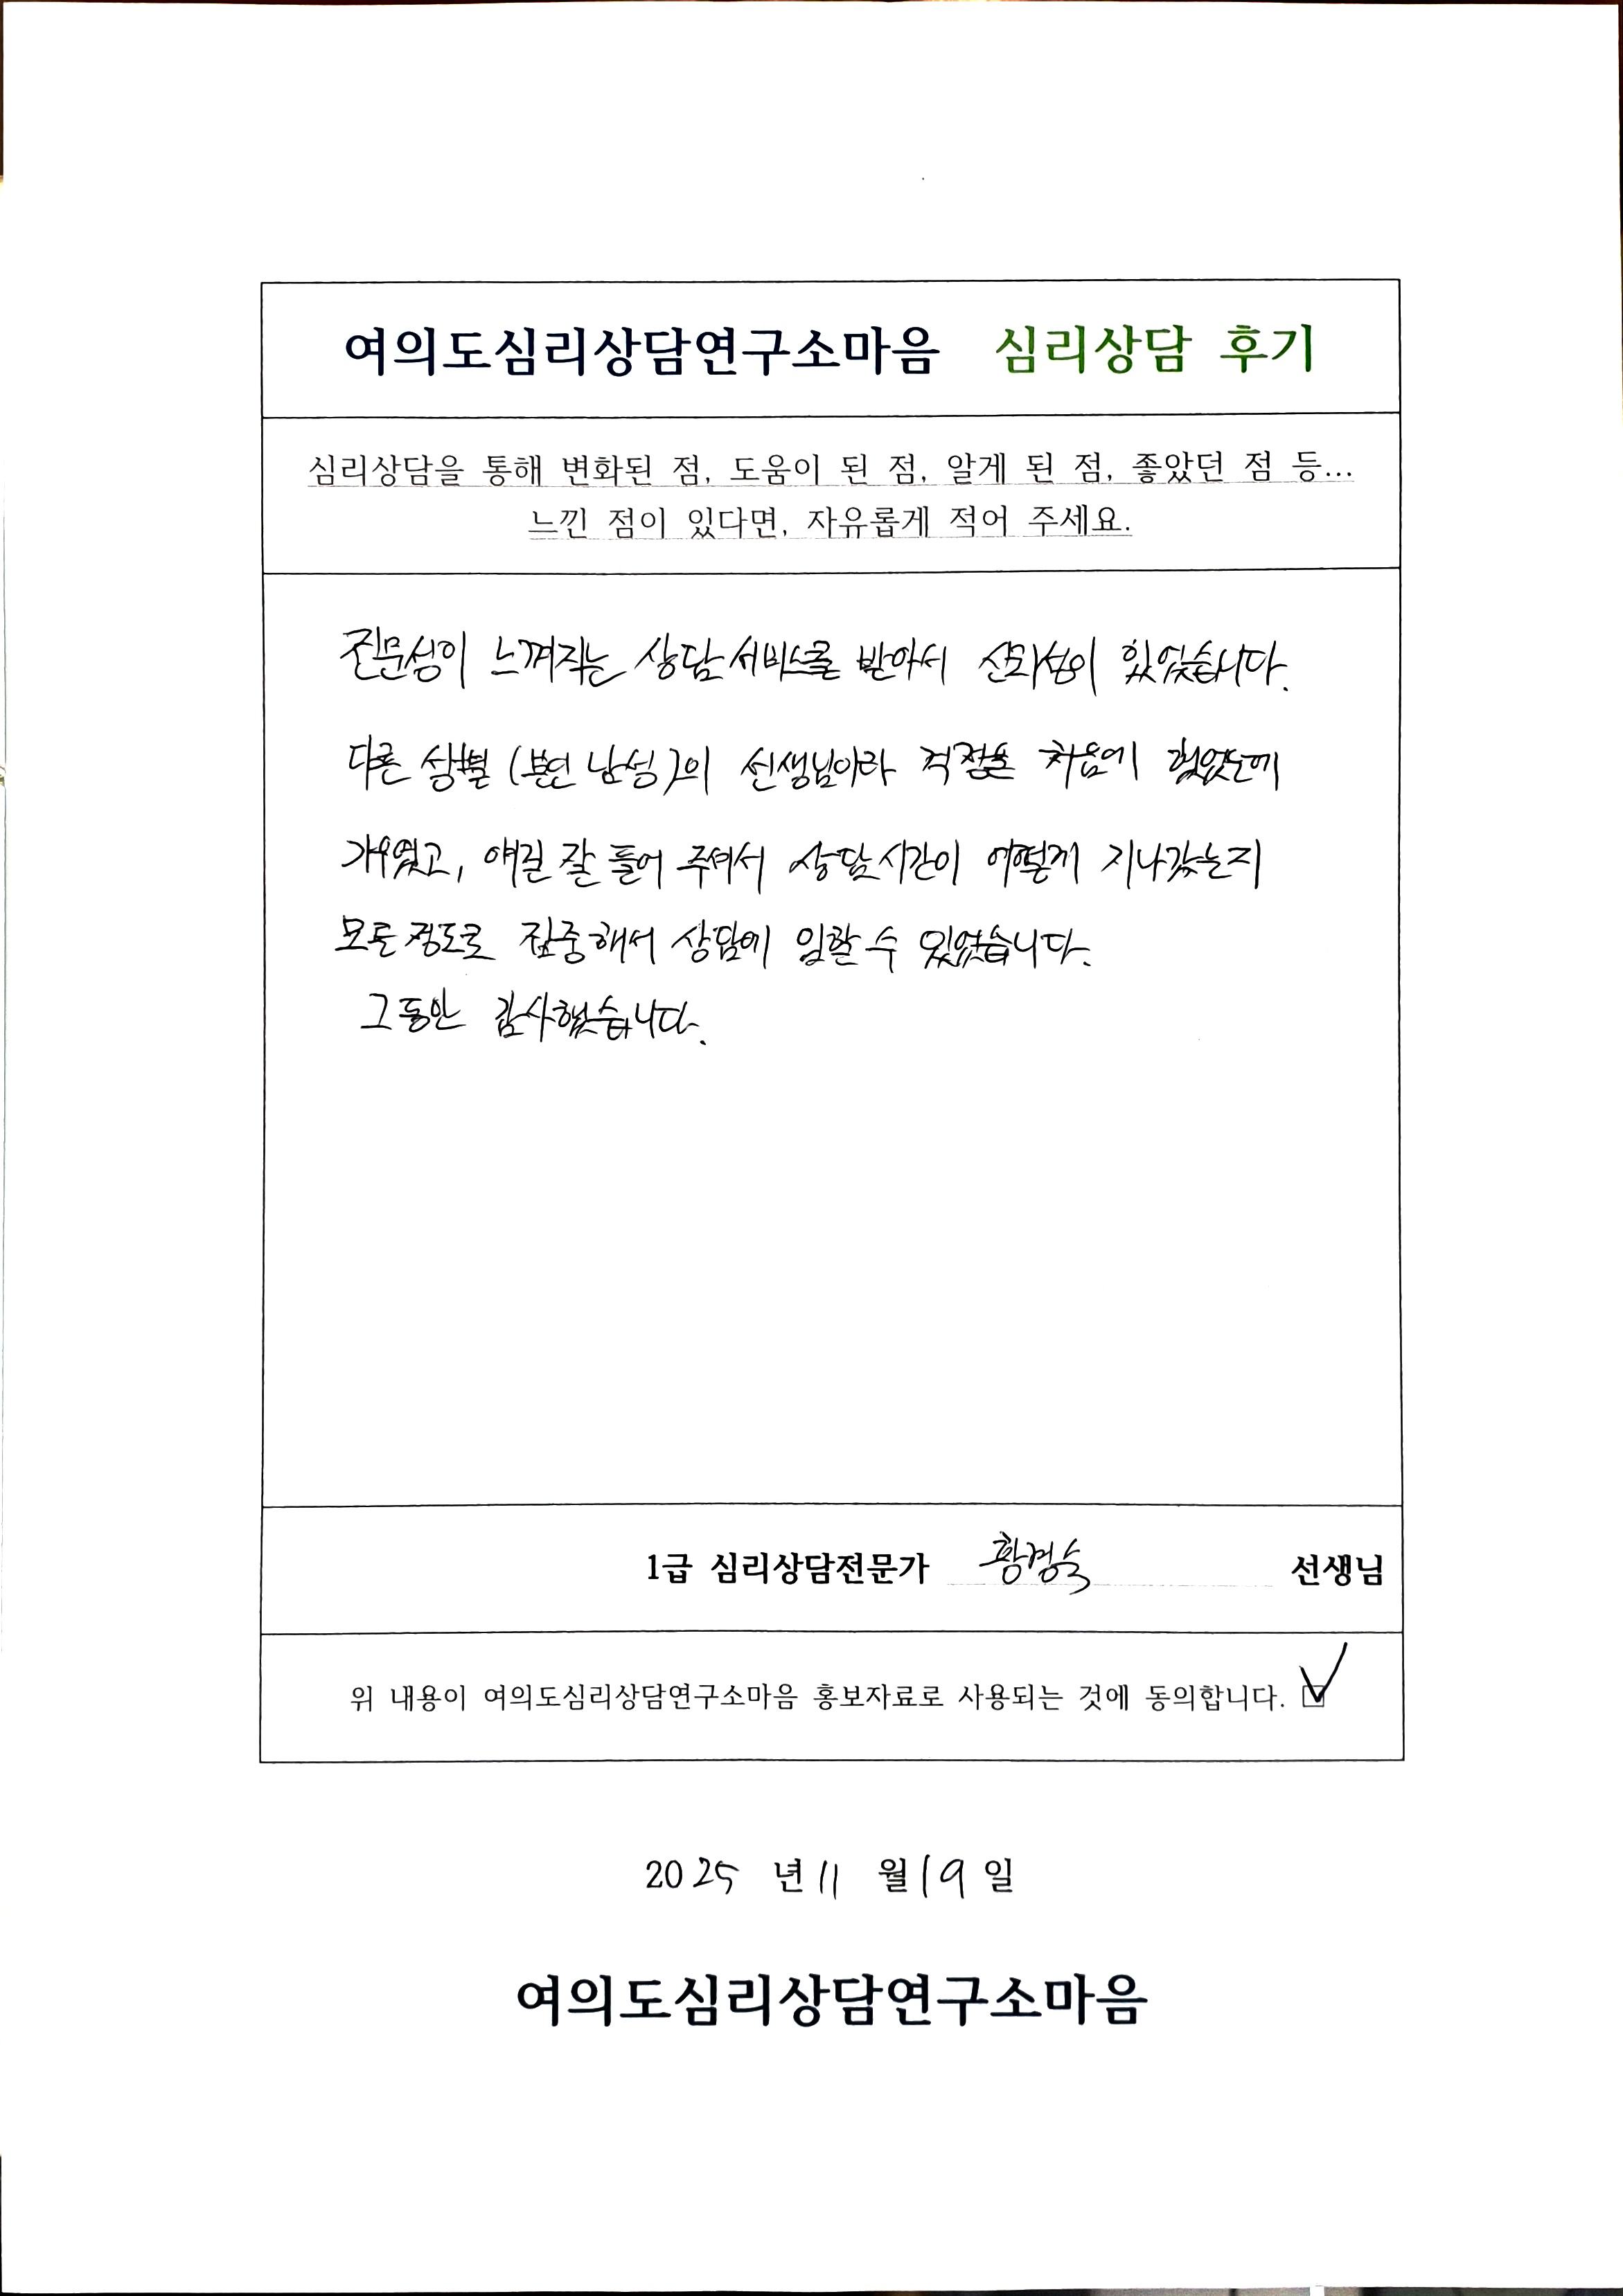 여의도심리상담연구소마음 심리상담 후기
심리상담을 통해 변화된 점, 도움이 된 점, 알게 된 점, 좋았던 점 등...
느낀 점이 있다면, 자유롭게 적어 주세요.
전문성이 느껴지는 상담 서비스를 받아서 신뢰성이 있었습니다.
다른 성별 (본인 남성)의 선생님이라 걱정을 처음에 했었는데
기우였고, 얘길 잘 들어 주셔서 상담시간이 어떻게 지나갔는지
모를 정도로 집중해서 상담에 임할 수 있었습니다.
그동안 감사했습니다.
1급 심리상담전문가 황경숙 선생님
위 내용이 여의도심리상담연구소마음 홍보자료로 사용되는 것에 동의합니다.
2025 년 11 월 19 일
여의도심리상담연구소마음